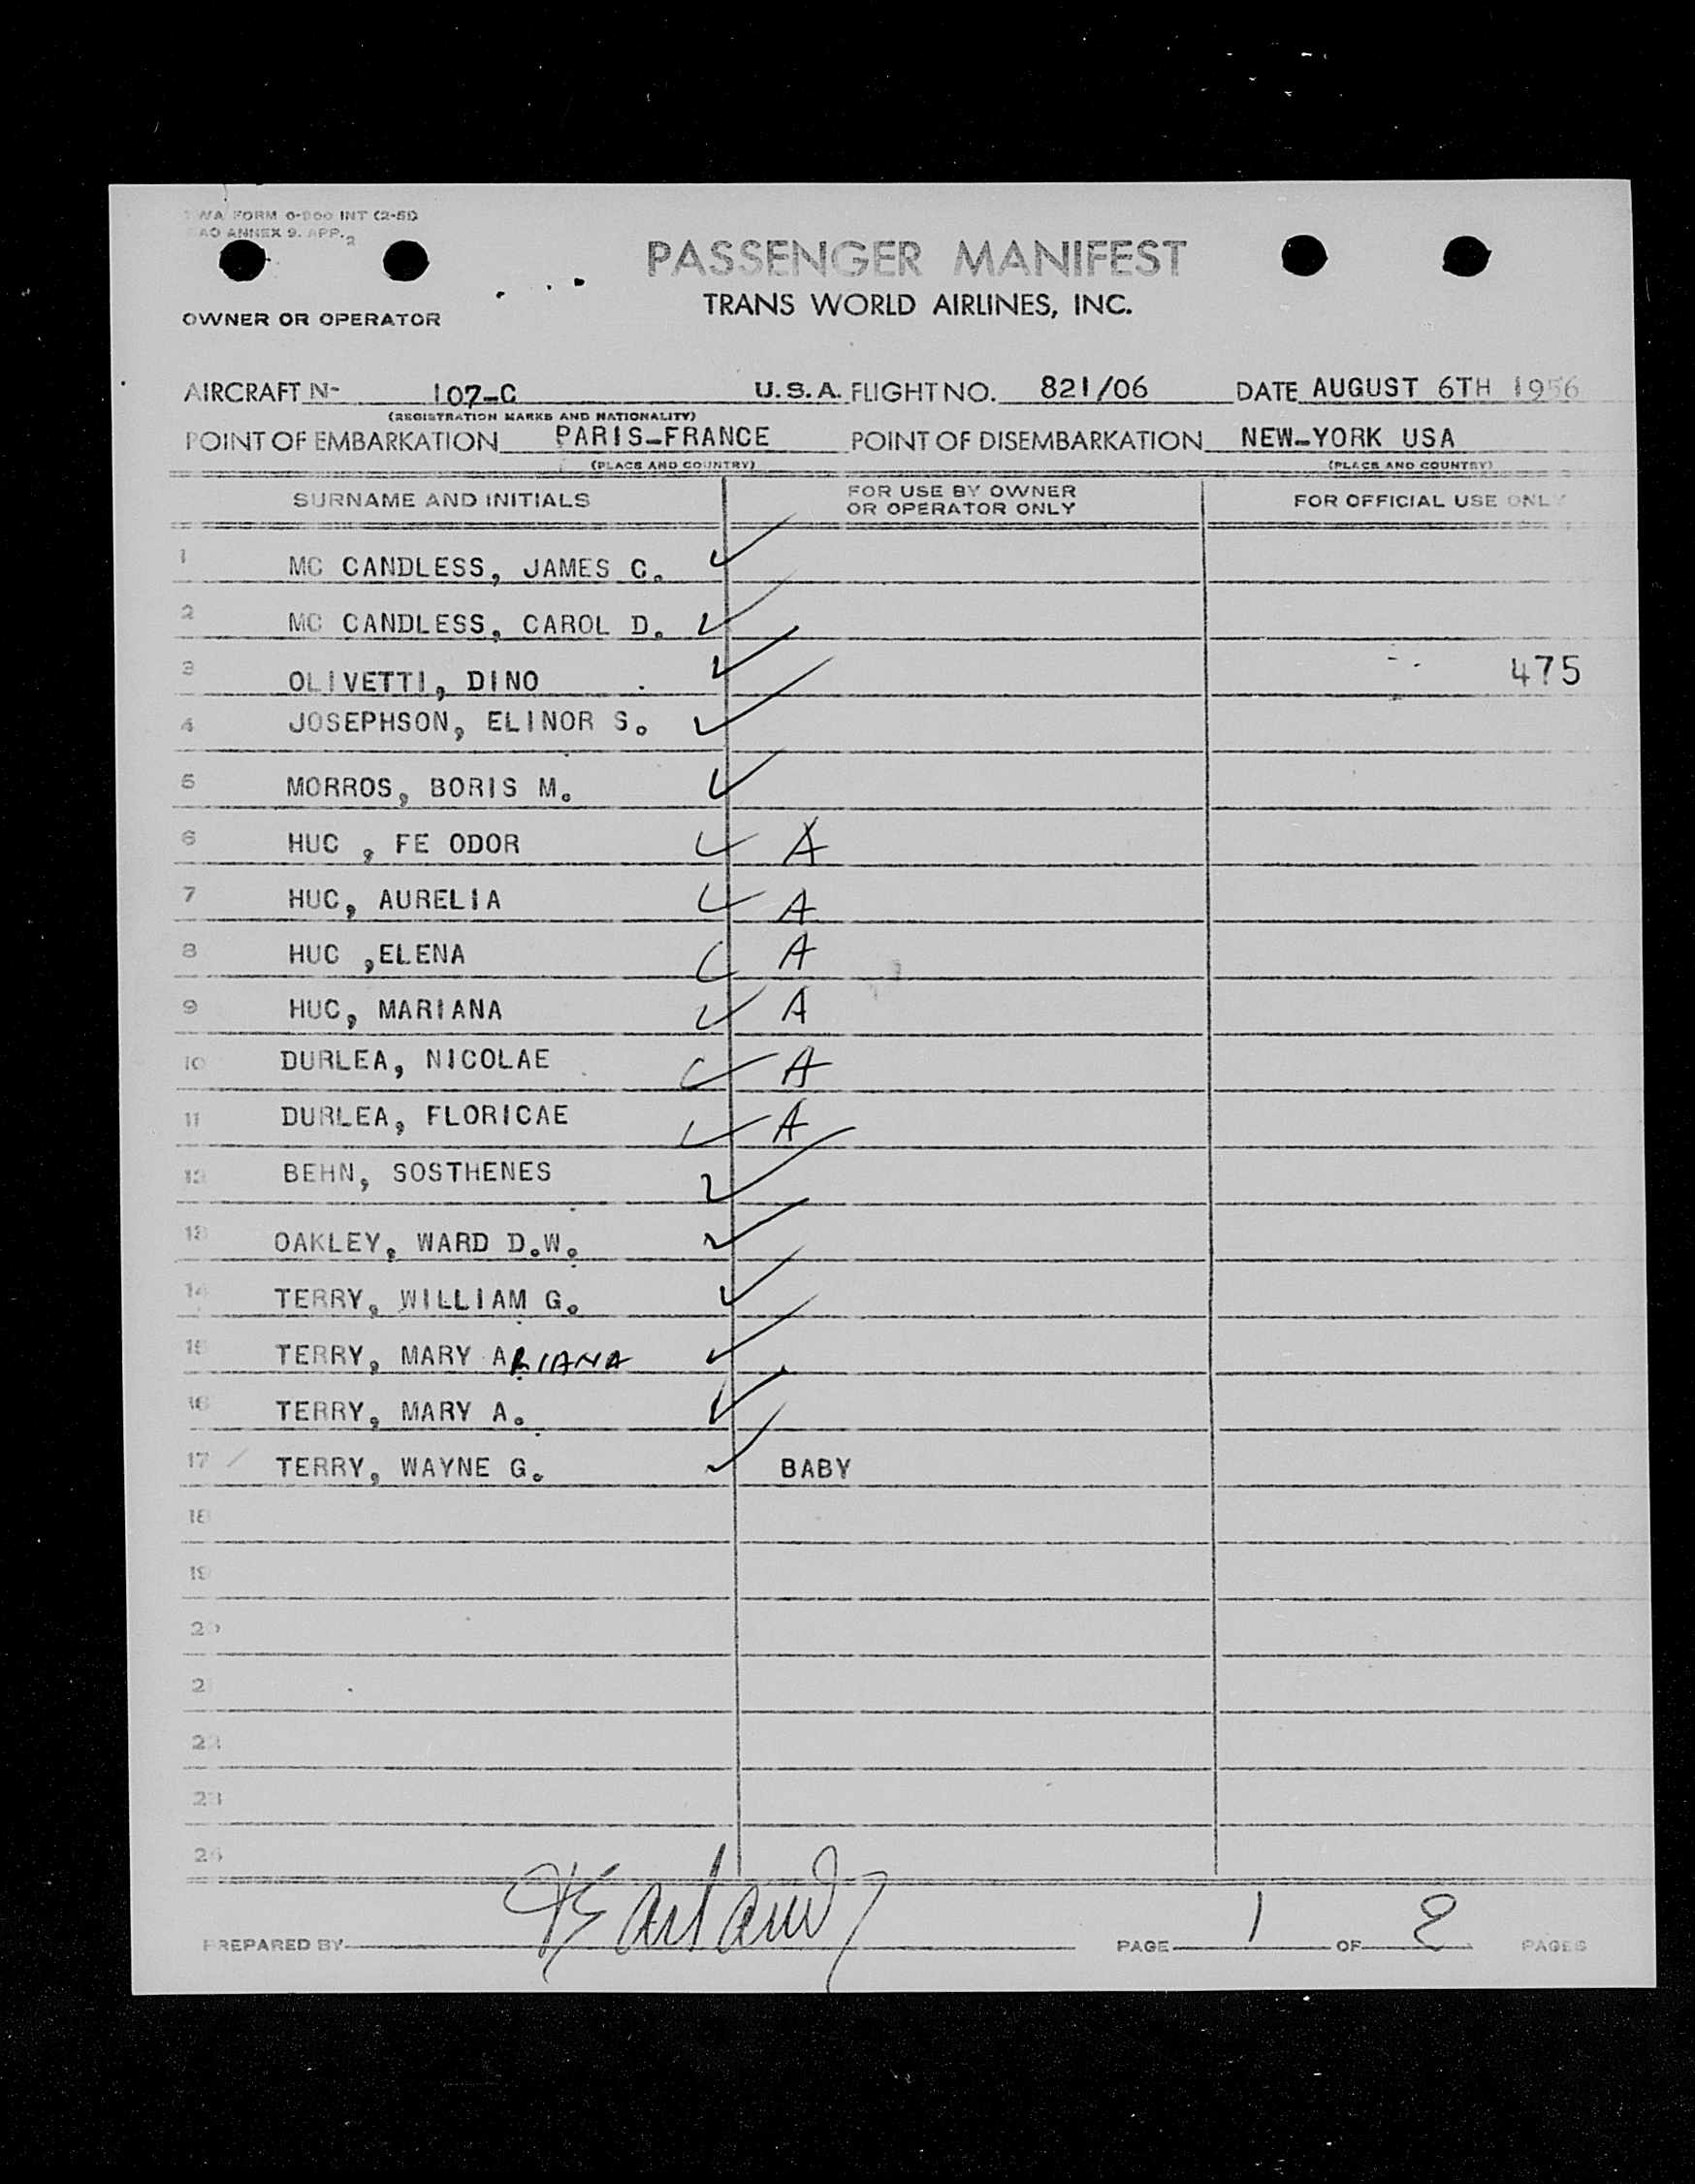 TWA FORM 0-800 INT (2-51)
ICAO ANNEX 9. APP. 2
PASSENGER MANIFEST
TRANS WORLD AIRLINES, INC.
OWNER OR OPERATOR
AIRCRAFT N- 107-C U.S.A. FLIGHT NO. 821/06 DATE AUGUST 6TH 1956
(REGISTRATION MARKS AND NATIONALITY)
POINT OF EMBARKATION PARIS-FRANCE POINT OF DISEMBARKATION NEW-YORK USA
(PLACE AND COUNTRY) (PLACE AND COUNTRY)
SURNAME AND INITIALS FOR USE BY OWNER OR OPERATOR ONLY FOR OFFICIAL USE ONLY
1 MC CANDLESS, JAMES C.
2 MC CANDLESS, CAROL D.
3 OLIVETTI, DINO 475
4 JOSEPHSON, ELINOR S.
5 MORROS, BORIS M.
6 HUC , FE ODOR A
7 HUC, AURELIA A
8 HUC ,ELENA A
9 HUC, MARIANA A
10 DURLEA, NICOLAE A
11 DURLEA, FLORICAE A
12 BEHN, SOSTHENES
13 OAKLEY, WARD D.W.
14 TERRY, WILLIAM G.
15 TERRY, MARY ARIANA
16 TERRY, MARY A.
17 TERRY, WAYNE G. BABY
18
19
20
21
22
23
24
PREPARED BY PAGE 1 OF 2 PAGES